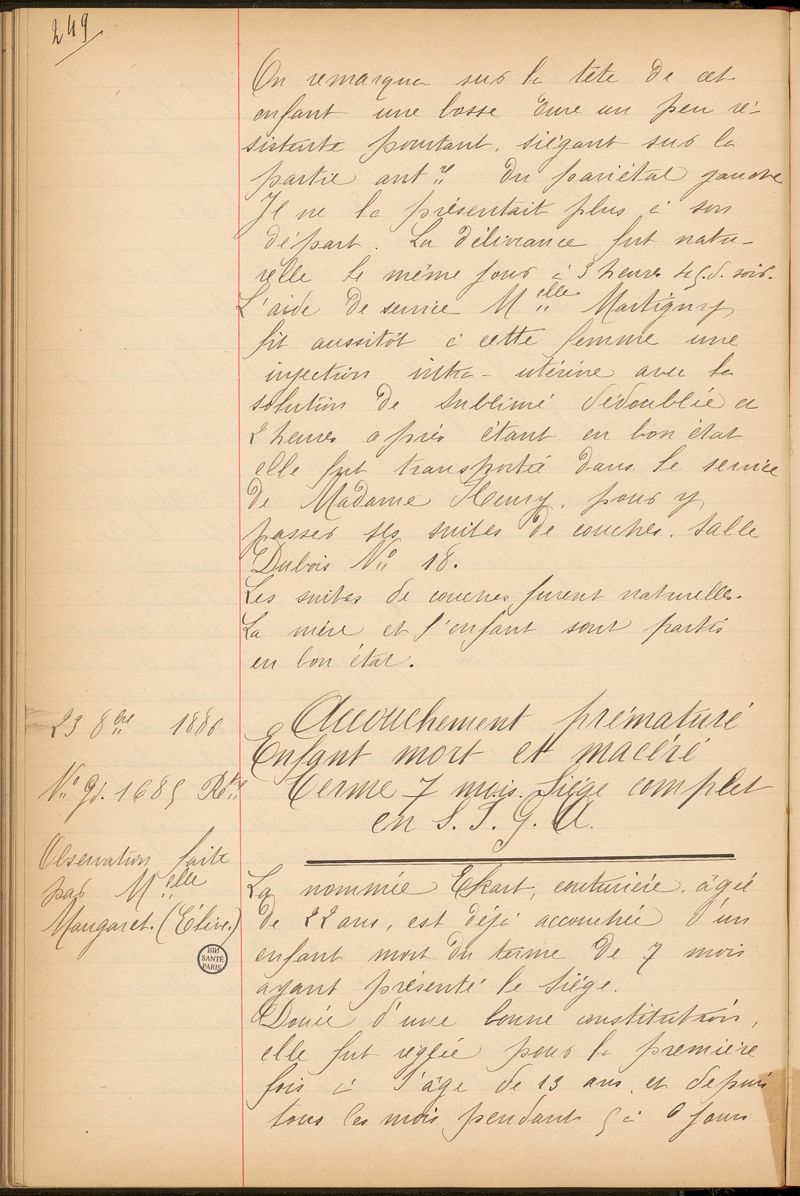 249
On remarqua sur la tête de cet
enfant une bosse dure un peu ré-
sistante pourtant, siégant sur la
partie antre du pariétal gauche
Il ne la présentait plus à son
départ. La délivrance fut natu-
relle le même jour à 3 heures 45 d. soir.
L'aide de service Melle Martigny
fit aussitôt à cette femme une
injection intra-utérine avec la
solution de sublimé dédoublée et
2 heures après étant en bon état
elle fut transportée dans le service
de Madame Henry, pour y
passer ses suites de couches. Salle
Dubois No 18.
Les suites de couches furent naturelles.
La mère et l'enfant sont partis
en bon état.
23 8bre 1886
No gd. 1685 Rtre
Observation faite
par Melle
Mangaret. (Elève.)
BIU
SANTÉ
PARIS
Accouchement prématuré
Enfant mort et macéré
Terme 7 mois. Siège complet
en S. I. G. A.
La nommée Ekart, couturière, âgée
de 22 ans, est déjà accouchée d'un
enfant mort du terme de 7 mois
ayant présenté le siège.
Douée d'une bonne constitution,
elle fut réglée pour la première
fois à l'âge de 13 ans, et depuis
tous les mois pendant 5 à 6 jours